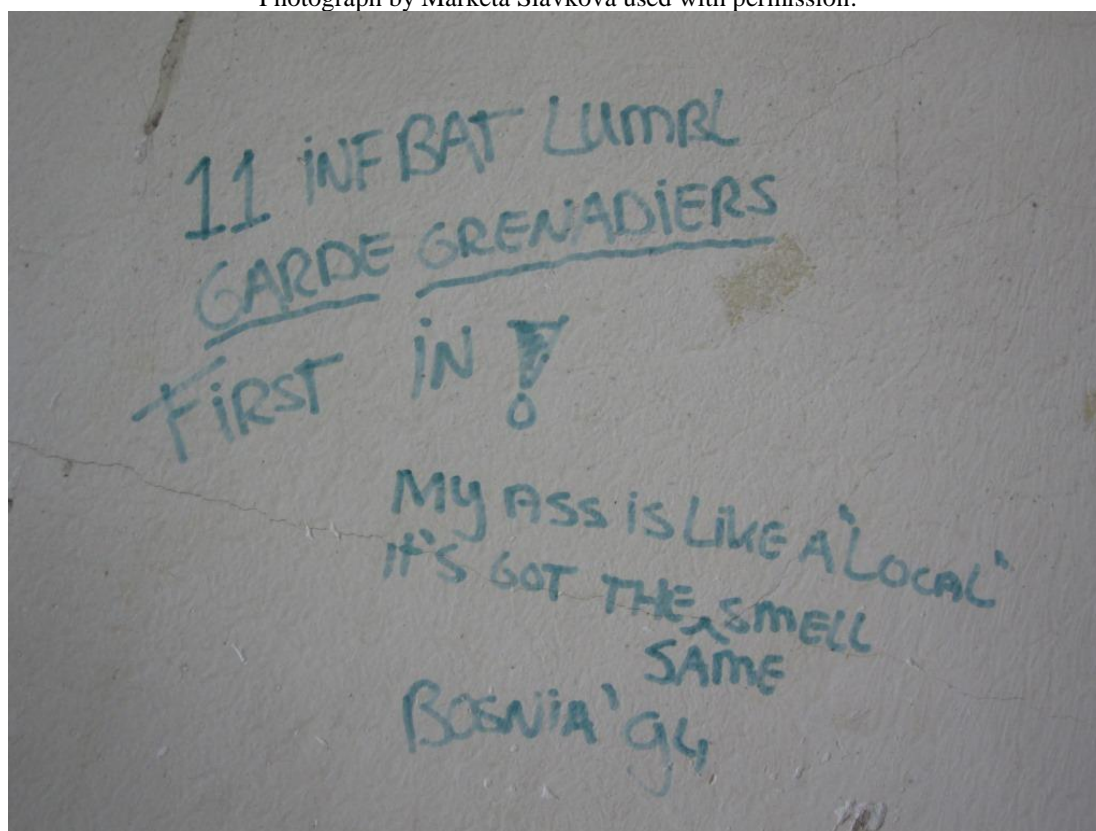 Photograph by Marketa Slavkova used with permission.
11 iNF BAT LUMBL
GARDE GRENADiERS
FiRST iN !
MY ASS iS LiKE A "LOCAL"
IT'S GOT THE SMELL
SAME
BOSNiA '94